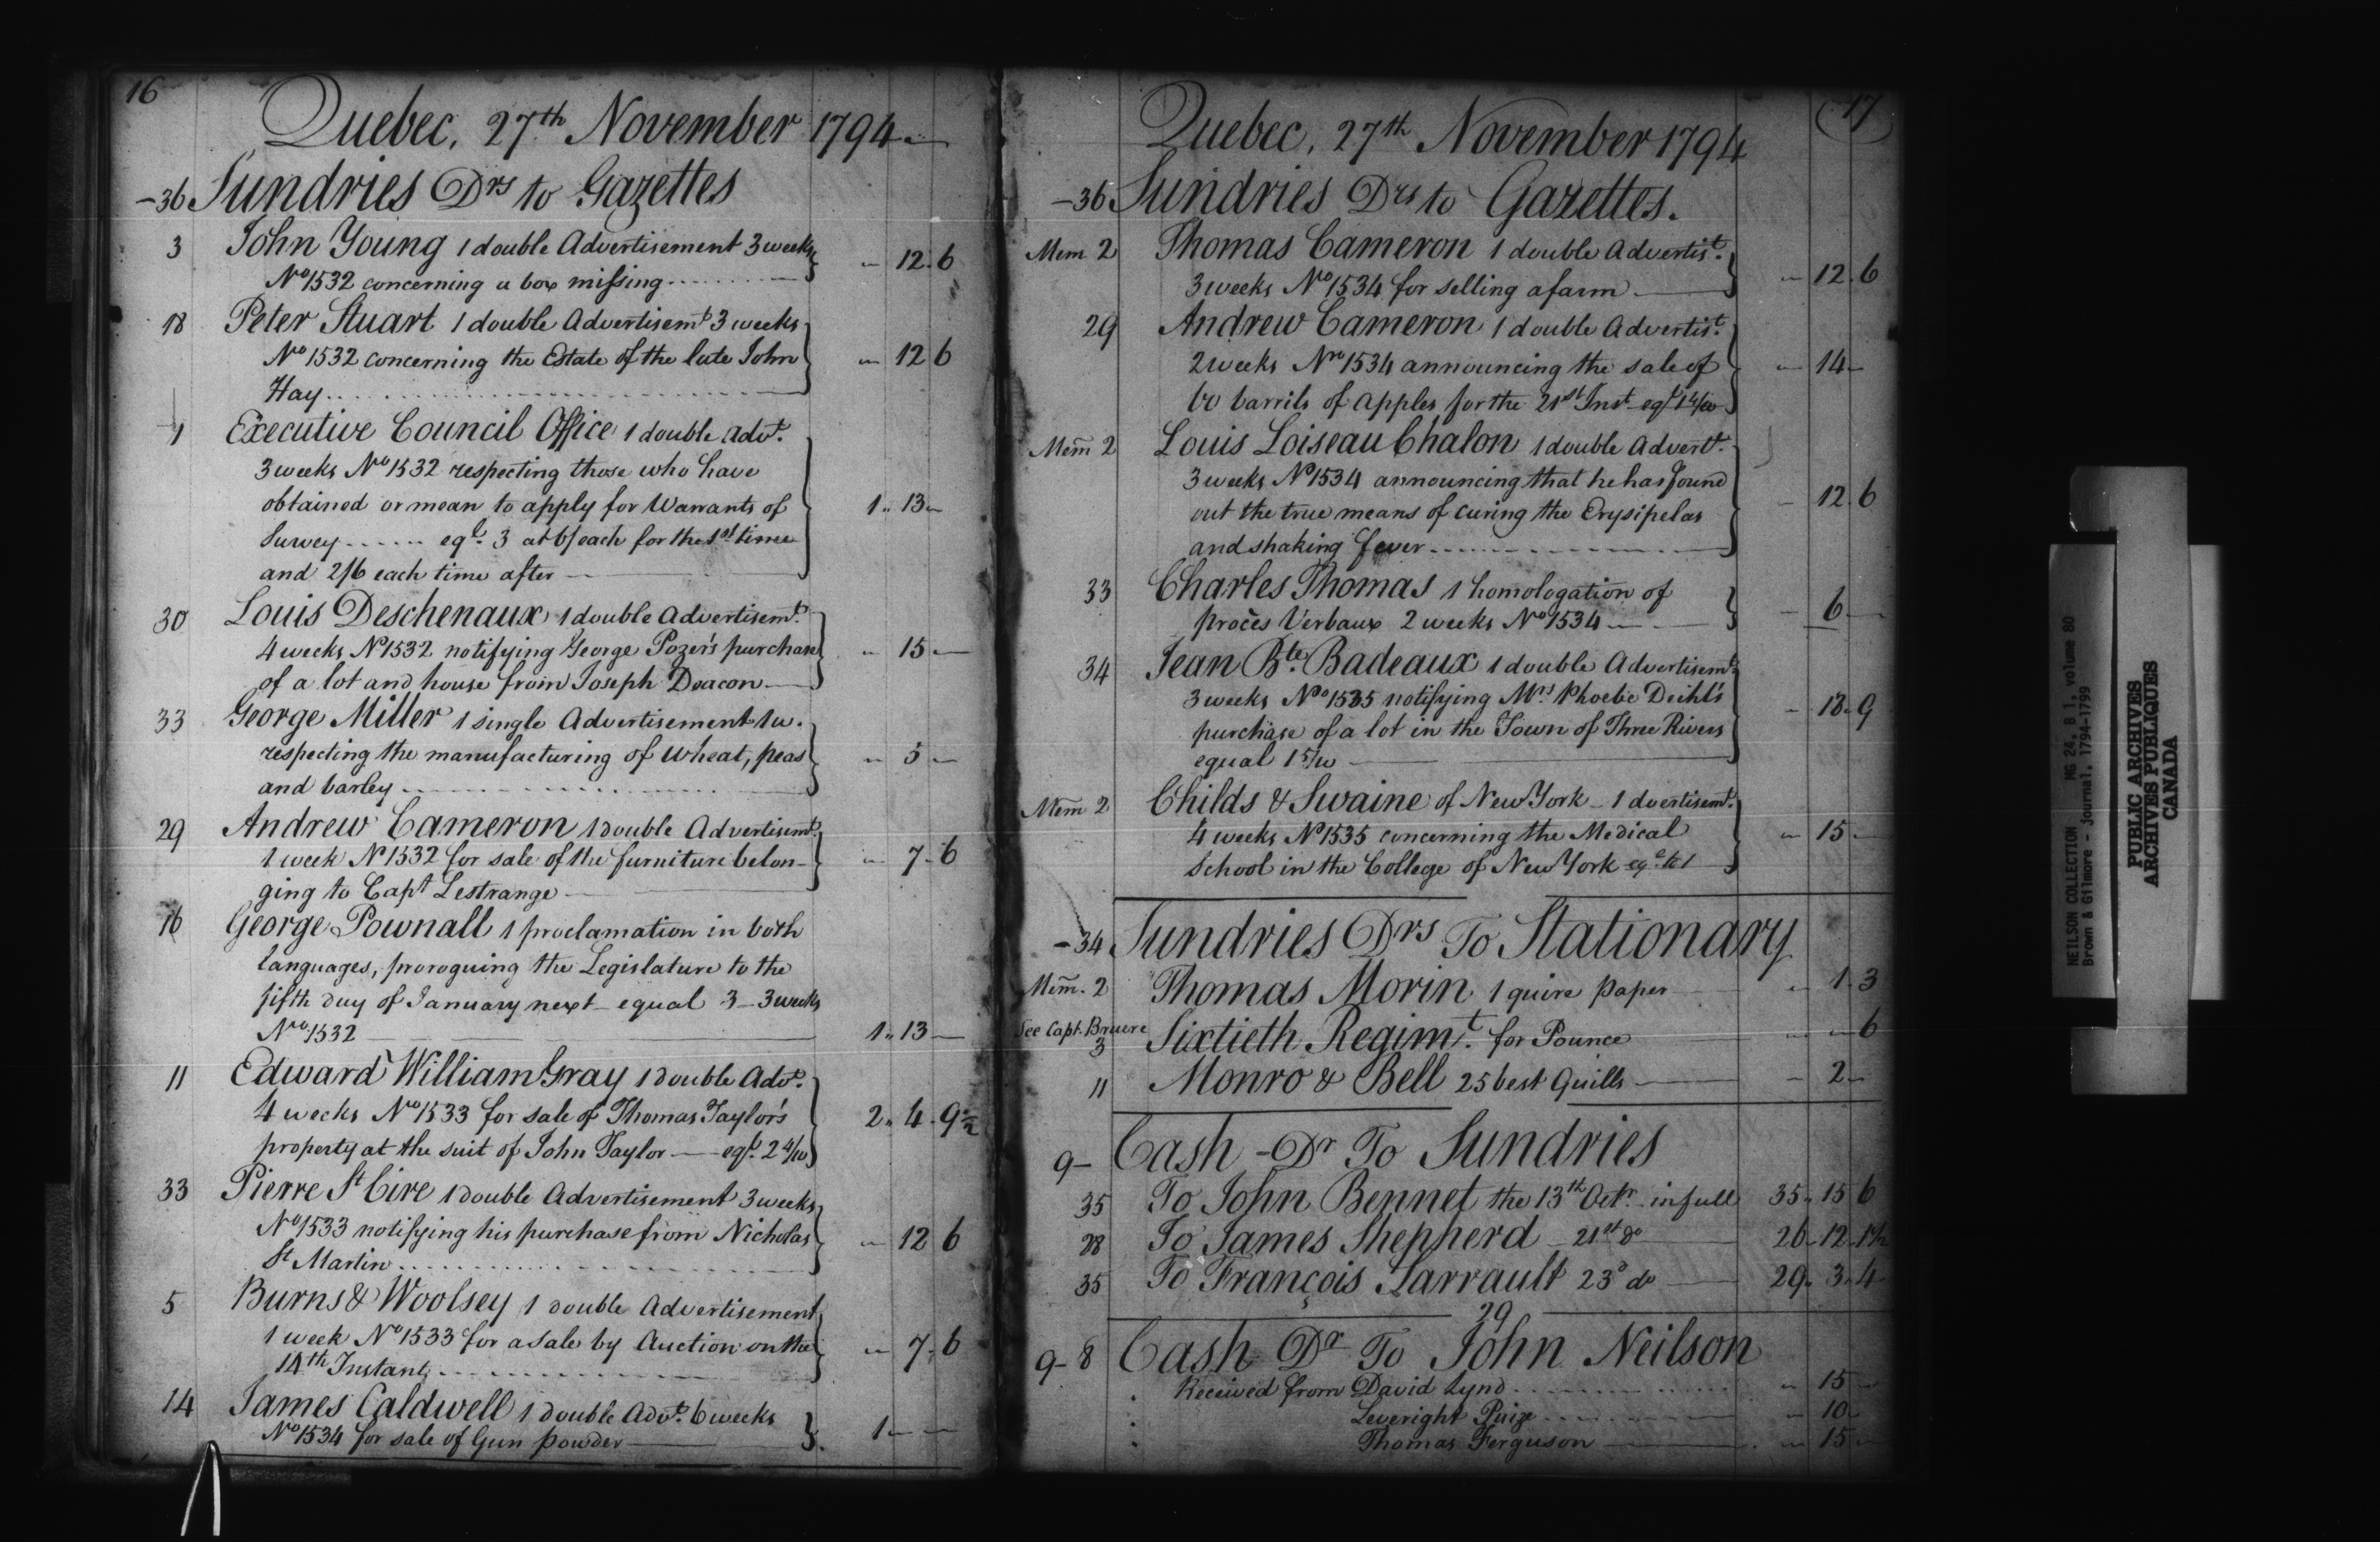 16
Quebec, 27th November 1794
-36 Sundries Drs to Gazettes
3 John Young 1 double Advertisement 3 weeks
No 1532 concerning a box missing - 12 6
18 Peter Stuart 1 double Advertisemt 3 weeks
No 1532 concerning the Estate of the late John - 12 6
Hay
1 Executive Council Office 1 double Advt.
3 weeks No 1532 respecting those who have
obtained or mean to apply for Warrants of 1 .. 13 -
Survey ...... eql. 3 at 6/ each for the 1st time
and 2/6 each time after
30 Louis Deschenaux 1 double Advertisemt.
4 weeks No 1532 notifying George Pozer's purchase - 15 -
of a lot and house from Joseph Deacon
33 George Miller 1 single Advertisement 1 w.
respecting the manufacturing of wheat, peas - 5 -
and barley
29 Andrew Cameron 1 double Advertisemt.
1 week No 1532 for sale of the furniture belon- - 7 - 6
ging to Capt Lestrange
16 George Pownall 1 proclamation in both
languages, proroguing the Legislature to the
fifth day of January next equal 3 - 3 weeks
No 1532 1 .. 13 -
11 Edward William Gray 1 double Advt.
4 weeks No 1533 for sale of Thomas Taylor's 2 .. 4 . 9½
property at the suit of John Taylor — eql. 2 4/10
33 Pierre St Cire 1 double Advertisement 3 weeks
No 1533 notifying his purchase from Nicholas - 12 6
St Martin
5 Burns & Woolsey 1 double Advertisement
1 week No 1533 for a sale by Auction on the - 7 - 6
14th Instant
14 James Caldwell 1 double Advt. 6 weeks
No 1534 for sale of Gun powder 1 - -
17
Quebec, 27th November 1794
-36 Sundries Drs to Gazettes.
Mem 2 Thomas Cameron 1 double Advertist.
3 weeks No 1534 for selling a farm - 12 . 6
29 Andrew Cameron 1 double Advertist.
2 weeks No 1534 announcing the sale of - 14 -
60 barrils of apples for the 21st Inst eql 1 4/10
Mem 2 Louis Loiseau Chalon 1 double Advertt.
3 weeks No 1534 announcing that he has found
out the true means of curing the Erysipelas - 12 . 6
and shaking fever
33 Charles Thomas 1 homologation of
procès Verbaux 2 weeks No 1534 - 6 -
34 Jean Bte. Badeaux 1 double Advertisemt
3 weeks No 1535 notifying Mrs. Phoebe Deihl's
purchase of a lot in the Town of Three Rivers - 18 - 9
equal 1 5/10
Mem 2 Childs & Swaine of New York - 1 dvertisemt.
4 weeks No 1535 concerning the Medical - 15 -
School in the College of New York eql. to 1
-34 Sundries Drs To Stationary
Mem. 2 Thomas Morin 1 quire paper - 1 . 3
See Capt. Bruere
3 Sixtieth Regimt. for Pounce - - 6
11 Monro & Bell 25 best Quills - 2 -
9- Cash Dr To Sundries
35 To John Bennet the 13th Octr. in full 35 .. 15 6
28 To James Shepherd 21st do 26 - 12 - 1½
35 To François Sarrault 23d do 29 .. 3 .. 4
29
9- 8 Cash Dr To John Neilson
Received from David Lynd - 15 -
Leveright - 10 -
Thomas Ferguson - 15 -
NEILSON COLLECTION MG 24, B 1, volume 80
Brown & Gilmore - journal, 1794-1799
PUBLIC ARCHIVES
ARCHIVES PUBLIQUES
CANADA